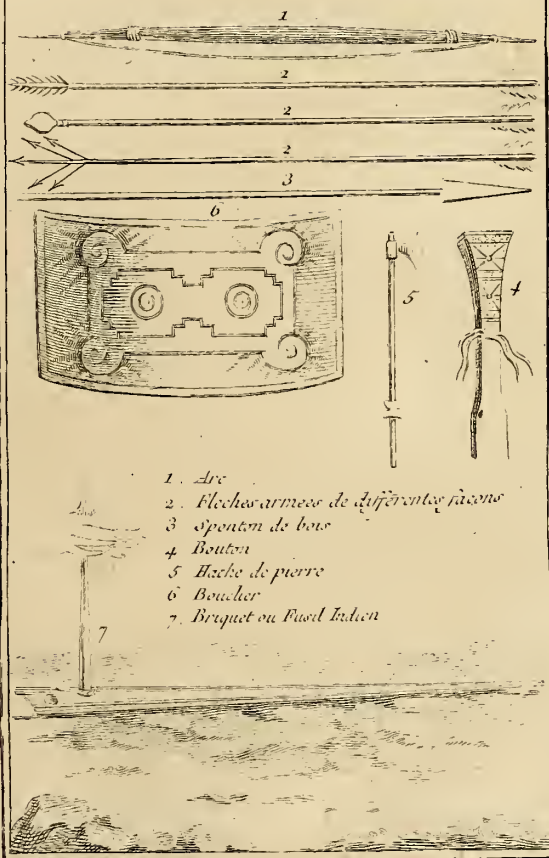 1
2
2
2
3
6
5
4
1. Arc
2. Fleches armees de différentes façons
3 Sponton de bois
4 Bouton
5 Hache de pierre
6 Bouclier
7. Briquet ou Fusil Indien
7